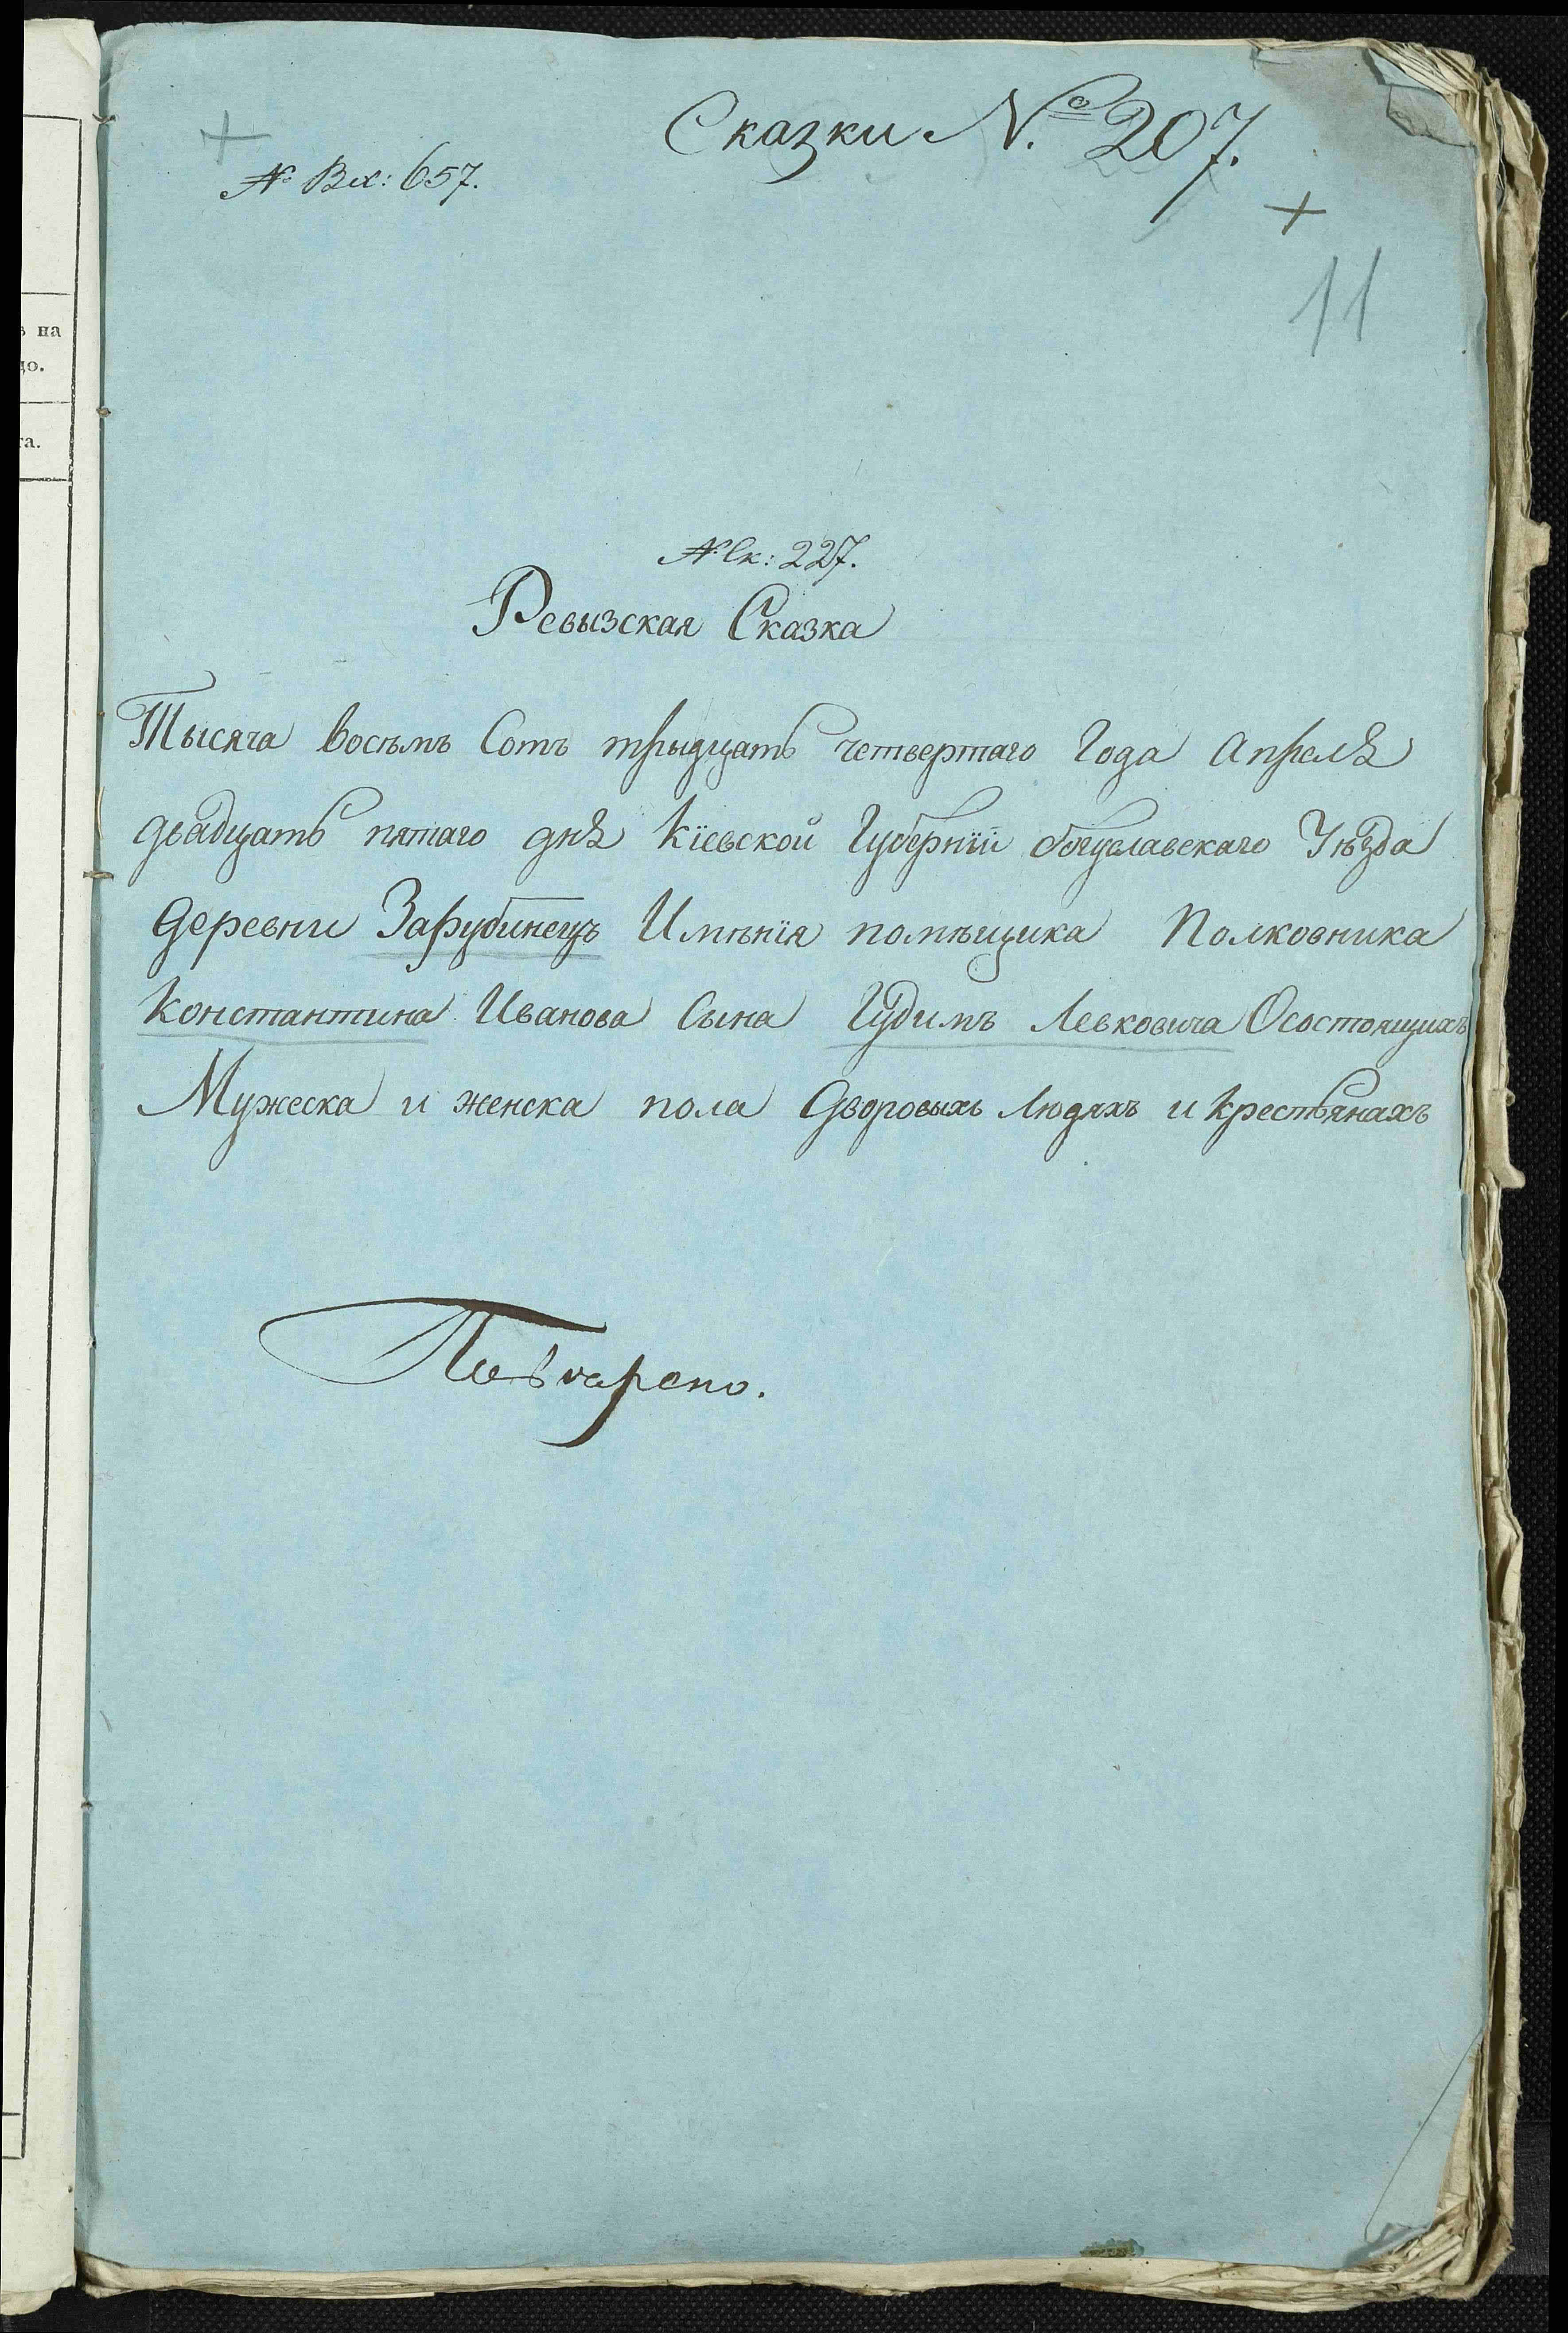 Сказки №. 207.
№ Вх: 657.
11
№ Ск: 227.
Ревызская Сказка
Тысяча восѣмъ Сотъ трыдцать четвертаго Года Апреля
двадцать пятаго дня Кіевской Губерніи богуславскаго Уѣзда
Деревни Зарубинецъ Имѣнія помѣщика Полковника
Константина Иванова Сына Гудимъ Левковича Осостоящихъ
Мужеска и женска пола Дворовыхъ Людяхъ и крестьянахъ
з на
до.
та.